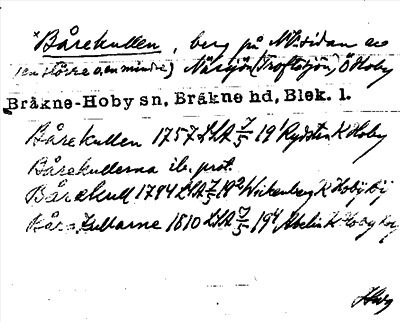 *Bårekullen, berg på NVsidan av
(en större o. en mindre) Närsjön (Troftesjön), Ö Hoby
Bräkne-Hoby sn, Bräkne hd, Blek. l.
Bårekullen 1757 LSA 7/5 19¹ Rydstin K Hoby
Bårekullerna ib. prot.
Bårekull 1794 LSA 7/5 19² Wikenberg K Hoby by
Kårakullarne 1810 LSA 7/5 19⁴ Abelin K Hoby